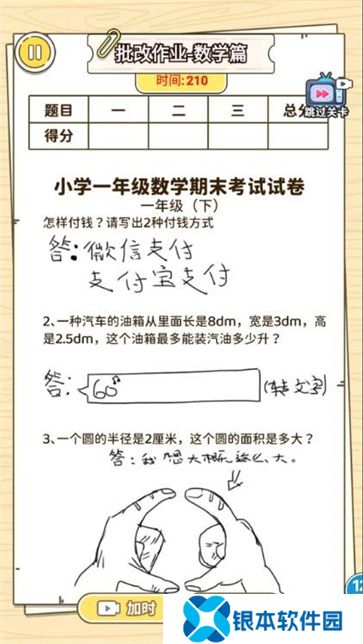 批改作业-数学篇
时间:210
跳过关卡
题目 一 二 三 总分
得分
小学一年级数学期末考试试卷
一年级（下）
怎样付钱？请写出2种付钱方式
答:微信支付
支付宝支付
2、一种汽车的油箱从里面长是8dm，宽是3dm，高
是2.5dm，这个油箱最多能装汽油多少升？
答: 60" (转文字)
3、一个圆的半径是2厘米，这个圆的面积是多大？
答:我想大概这么大。
加时
12
银本软件园